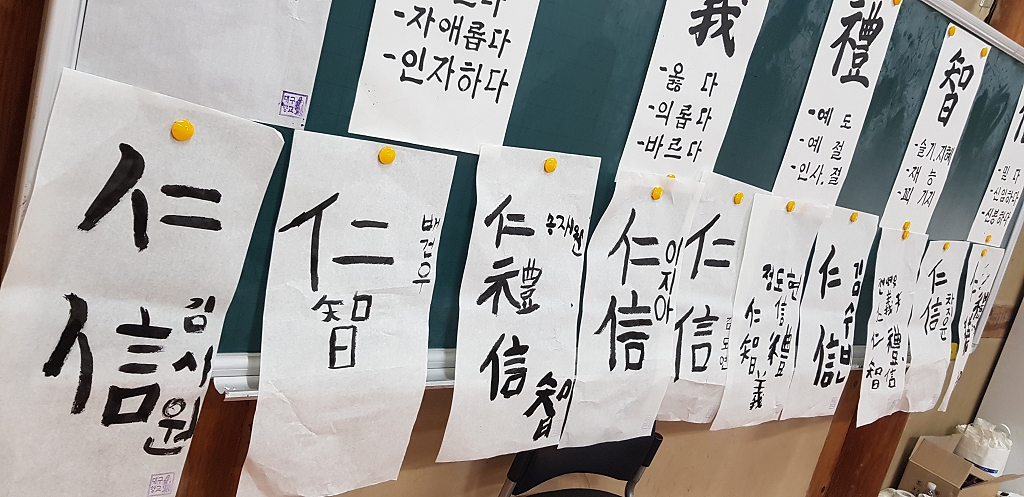 -자애롭다
-인자하다
義
-옳 다
-의롭다
-바르다
禮
-예 도
-예 절
-인사,절
智
-슬기,지혜
-재 능
-꾀 기지
-믿 다
-신임하다
-신봉하다
仁
信
김시원
仁
智
배건우
仁
禮
信
智
송재원
仁
信
이지아
仁
信
정도현
仁
智
禮
義
仁
信
김수빈
義
仁
禮
智
信
仁
信